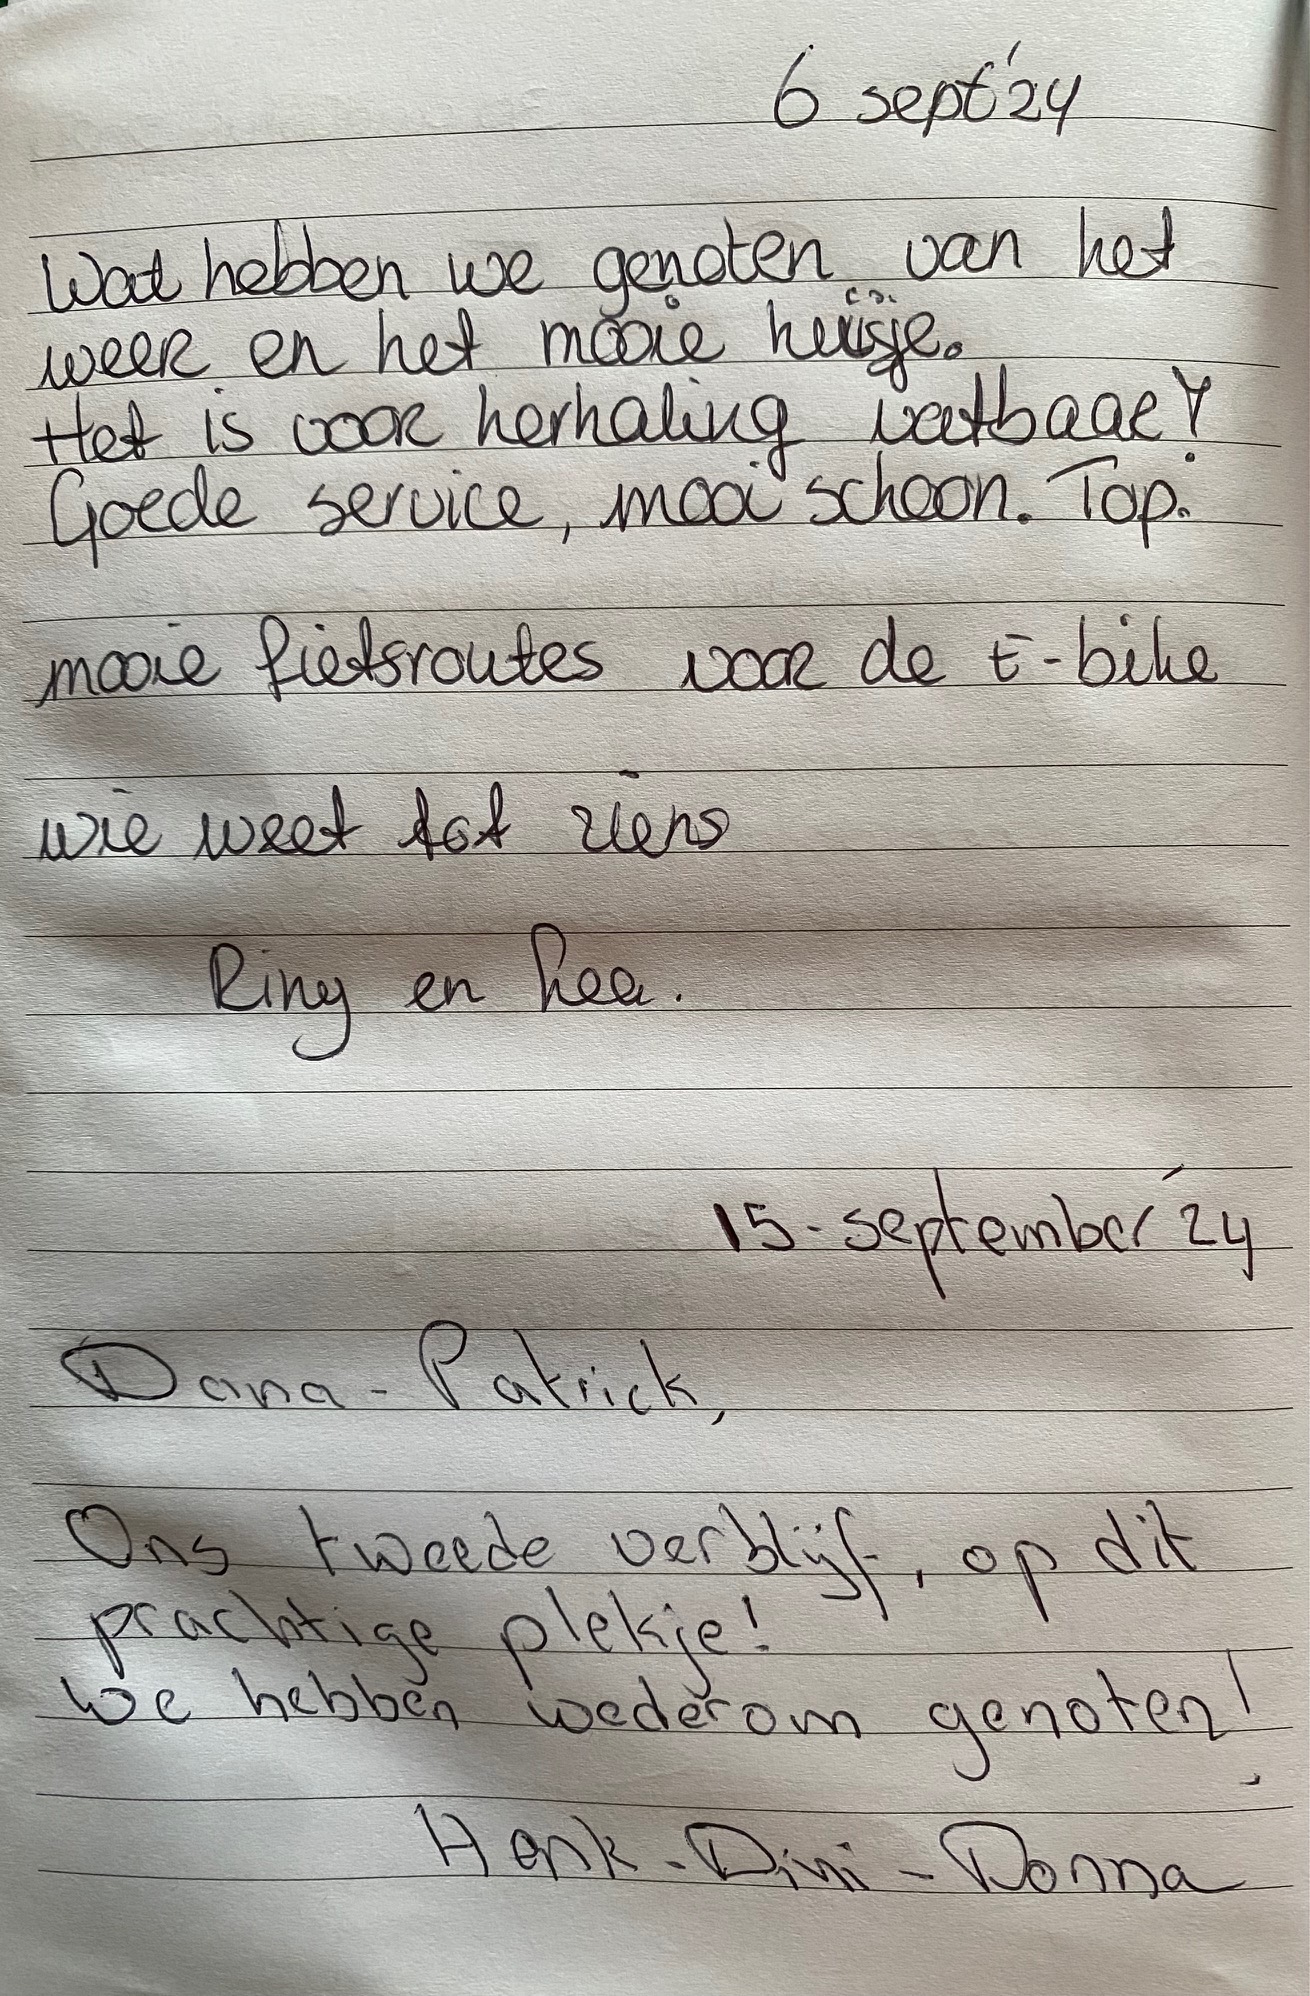 6 sept '24
Wat hebben we genoten van het
weer en het mooie huisje.
Het is voor herhaling vatbaar!
Goede service, mooi schoon. Top.
mooie fietsroutes voor de E-bike
wie weet tot ziens
Riny en
15-september '24
Dana - Patrick,
Ons tweede verblijf, op dit
prachtige plekje!
We hebben wederom genoten!
Henk - Dini - Donna